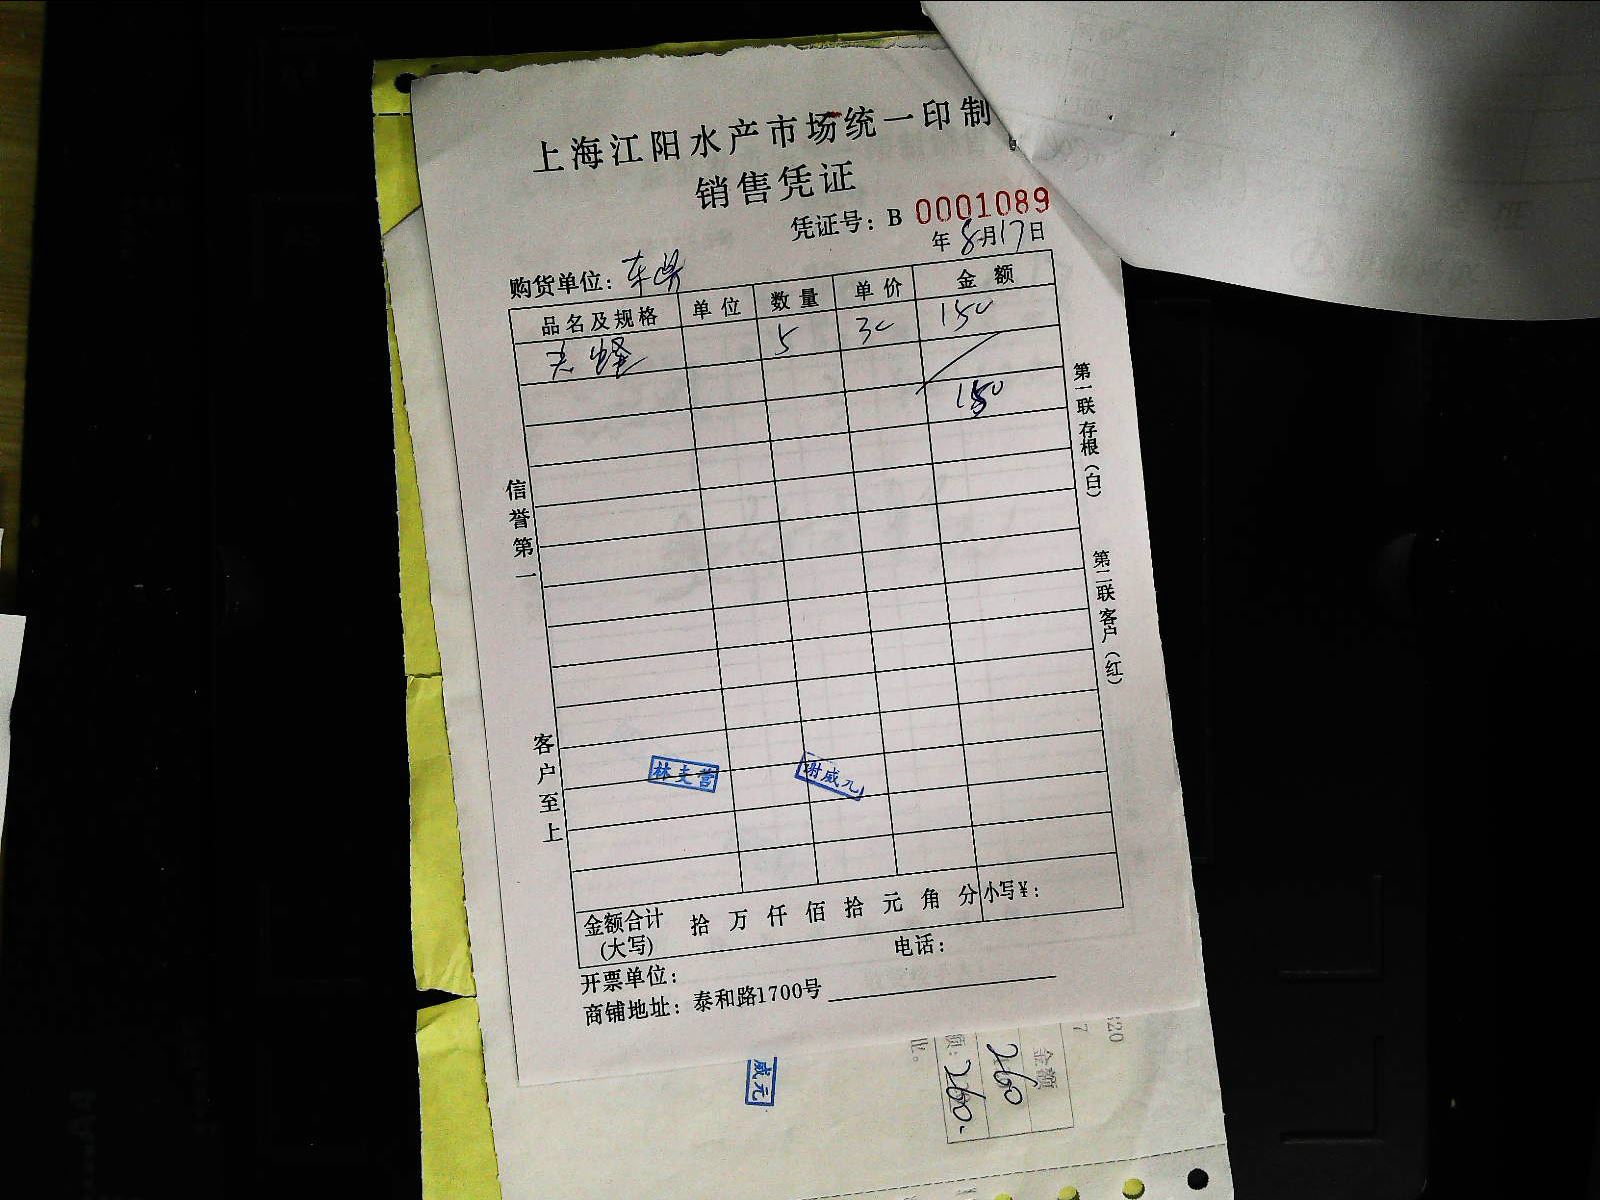 上海江阳水产市场统一印制
销售凭证
凭证号：B 0001089
年 8月17日
购货单位：
品名及规格 单位 数量 单价 金额
5 30 150
150
信誉第一
客户至上
第一联存根（白）
第二联客户（红）
谢威元
金额合计(大写) 拾 万 仟 佰 拾 元 角 分 小写¥：
开票单位： 电话：
商铺地址：泰和路1700号
威元
金额
260
额：260.